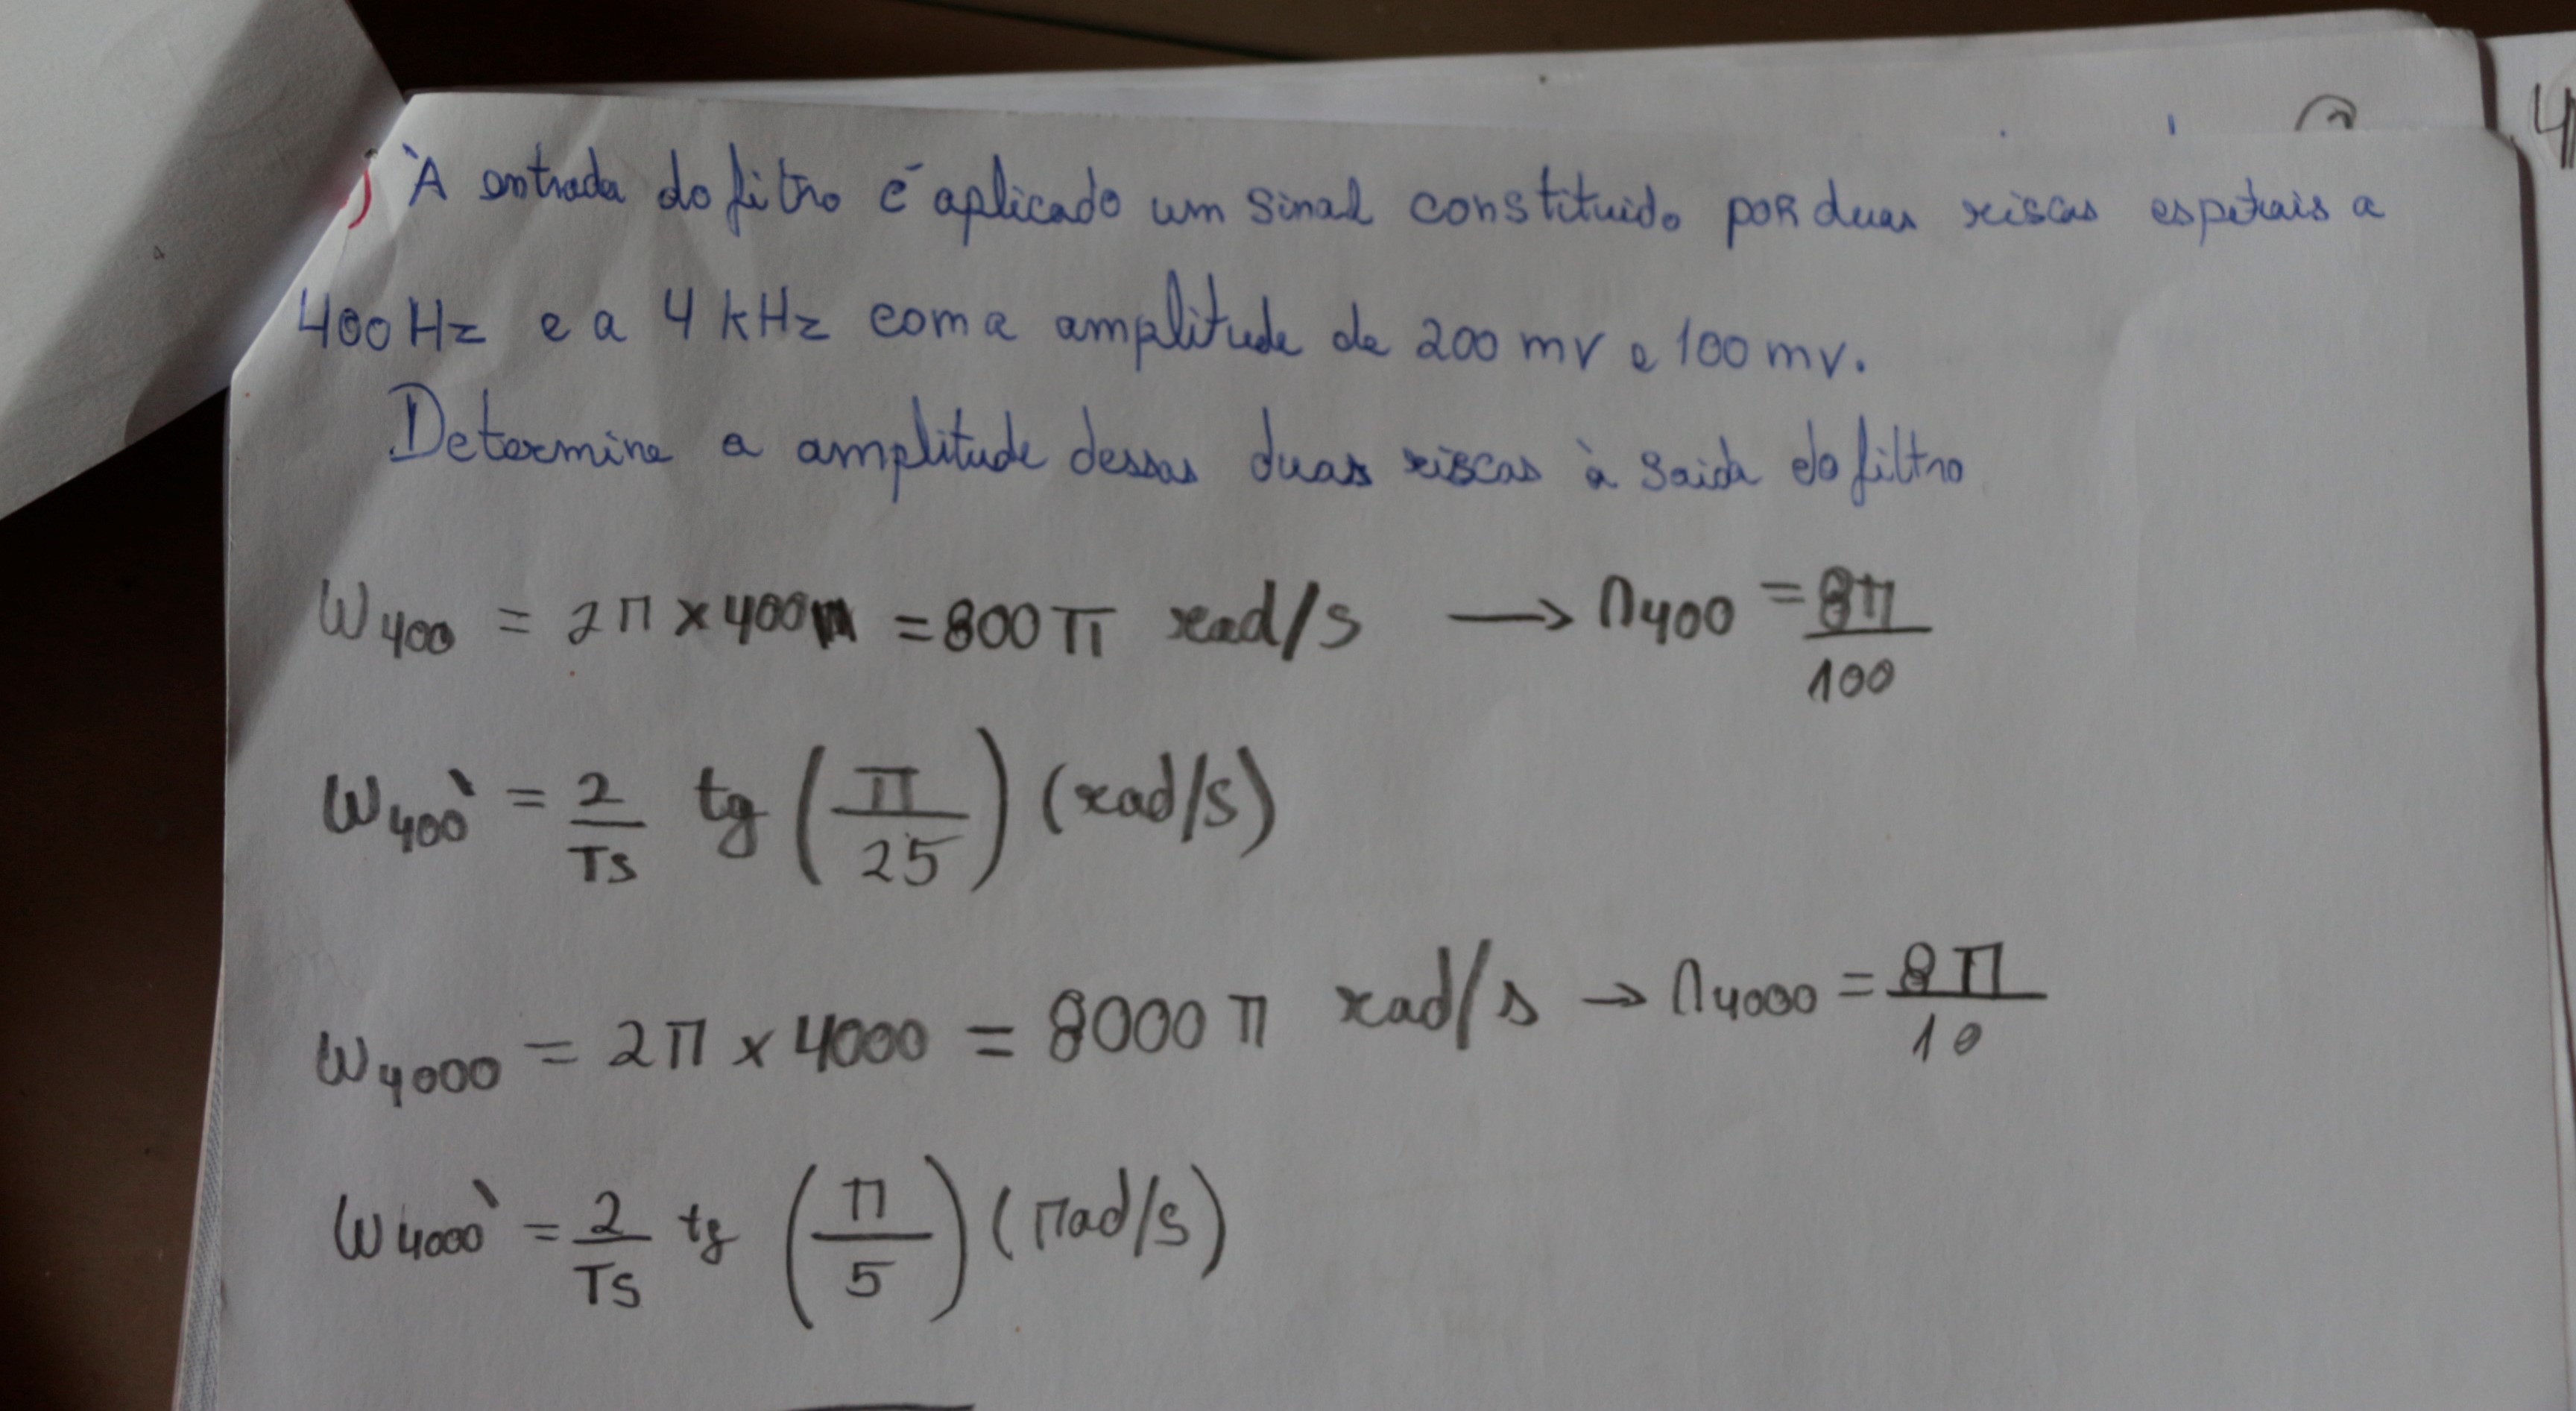 ) À entrada do filtro é aplicado um sinal constituido por duas riscas espetrais a
400 Hz e a 4 kHz com a amplitude de 200 mv e 100 mv.
Determine a amplitude dessas duas riscas à saida do filtro
W400 = 2π × 400 = 800 π rad/s → Ω400 = 8π/100
W400` = 2/Ts tg (π/25) (rad/s)
W4000 = 2π × 4000 = 8000 π rad/s → Ω4000 = 8π/10
W4000` = 2/Ts tg (π/5) (rad/s)